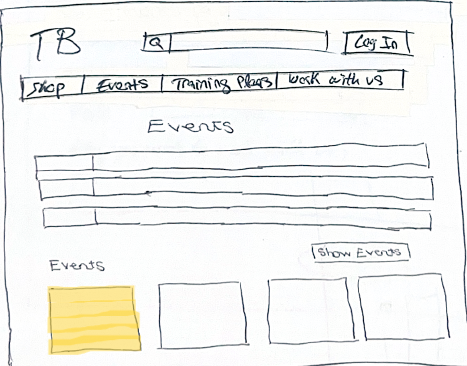 TB Q Log In
Shop Events Training Plans Work with us
Events
Show Events
Events